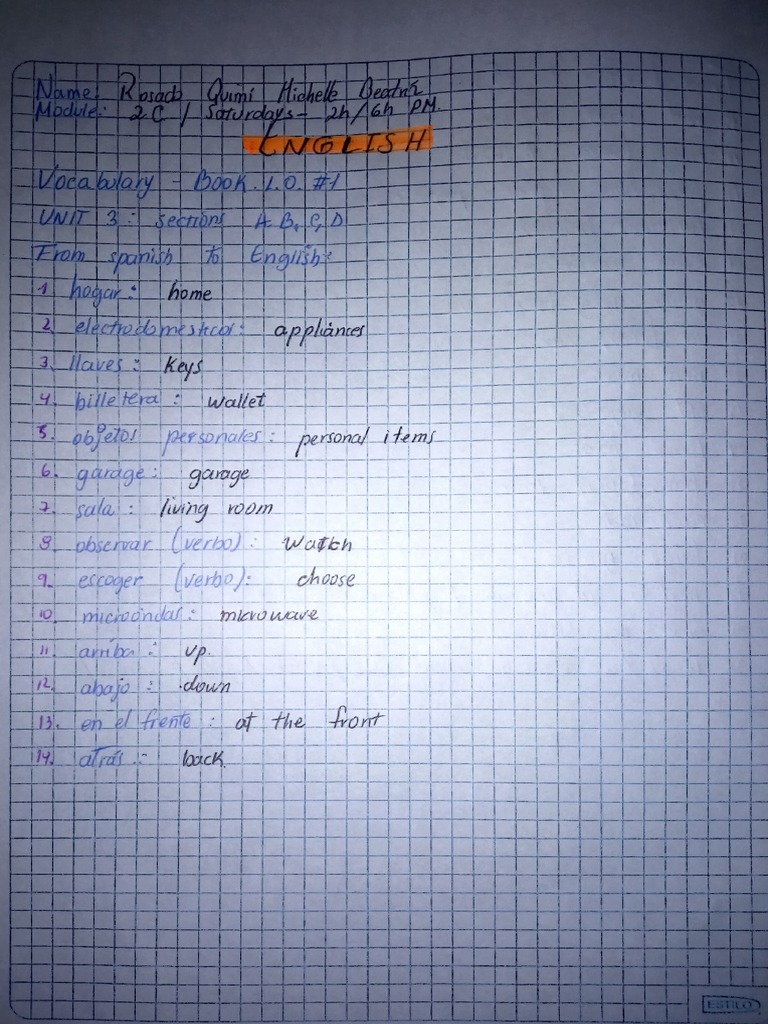 Name: Rosado Quimí Michelle Beatriz
Module: 2C / Saturdays - 2h/6h PM.
ENGLISH
Vocabulary - Book 1.0. #1
UNIT 3: sections A, B, C, D
From spanish to English:
1. hogar: home
2. electrodomesticos: appliances
3. llaves: keys
4. billetera: wallet
5. objetos personales: personal items
6. garage: garage
7. sala: living room
8. observar (verbo): Watch
9. escoger (verbo): choose
10. microondas: microwave
11. arriba: up.
12. abajo: down
13. en el frente: at the front
14. atrás: back.
ESTILO